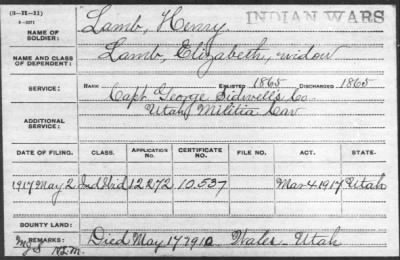 (3-II-11)
3-2271
INDIAN WARS
NAME OF SOLDIER: Lamb, Henry
NAME AND CLASS OF DEPENDENT: Lamb, Elizabeth, widow
SERVICE: RANK ENLISTED 1865 DISCHARGED 1865
Capt. George Sidwell's Co
Utah Militia Cav
ADDITIONAL SERVICE:
DATE OF FILING. CLASS. APPLICATION NO. CERTIFICATE NO. FILE NO. ACT. STATE.
1917 May 2 Ind Wid 12272 10.537 Mar 4 1917 Utah
BOUNTY LAND:
REMARKS: Died May 17 1912 Wales - Utah